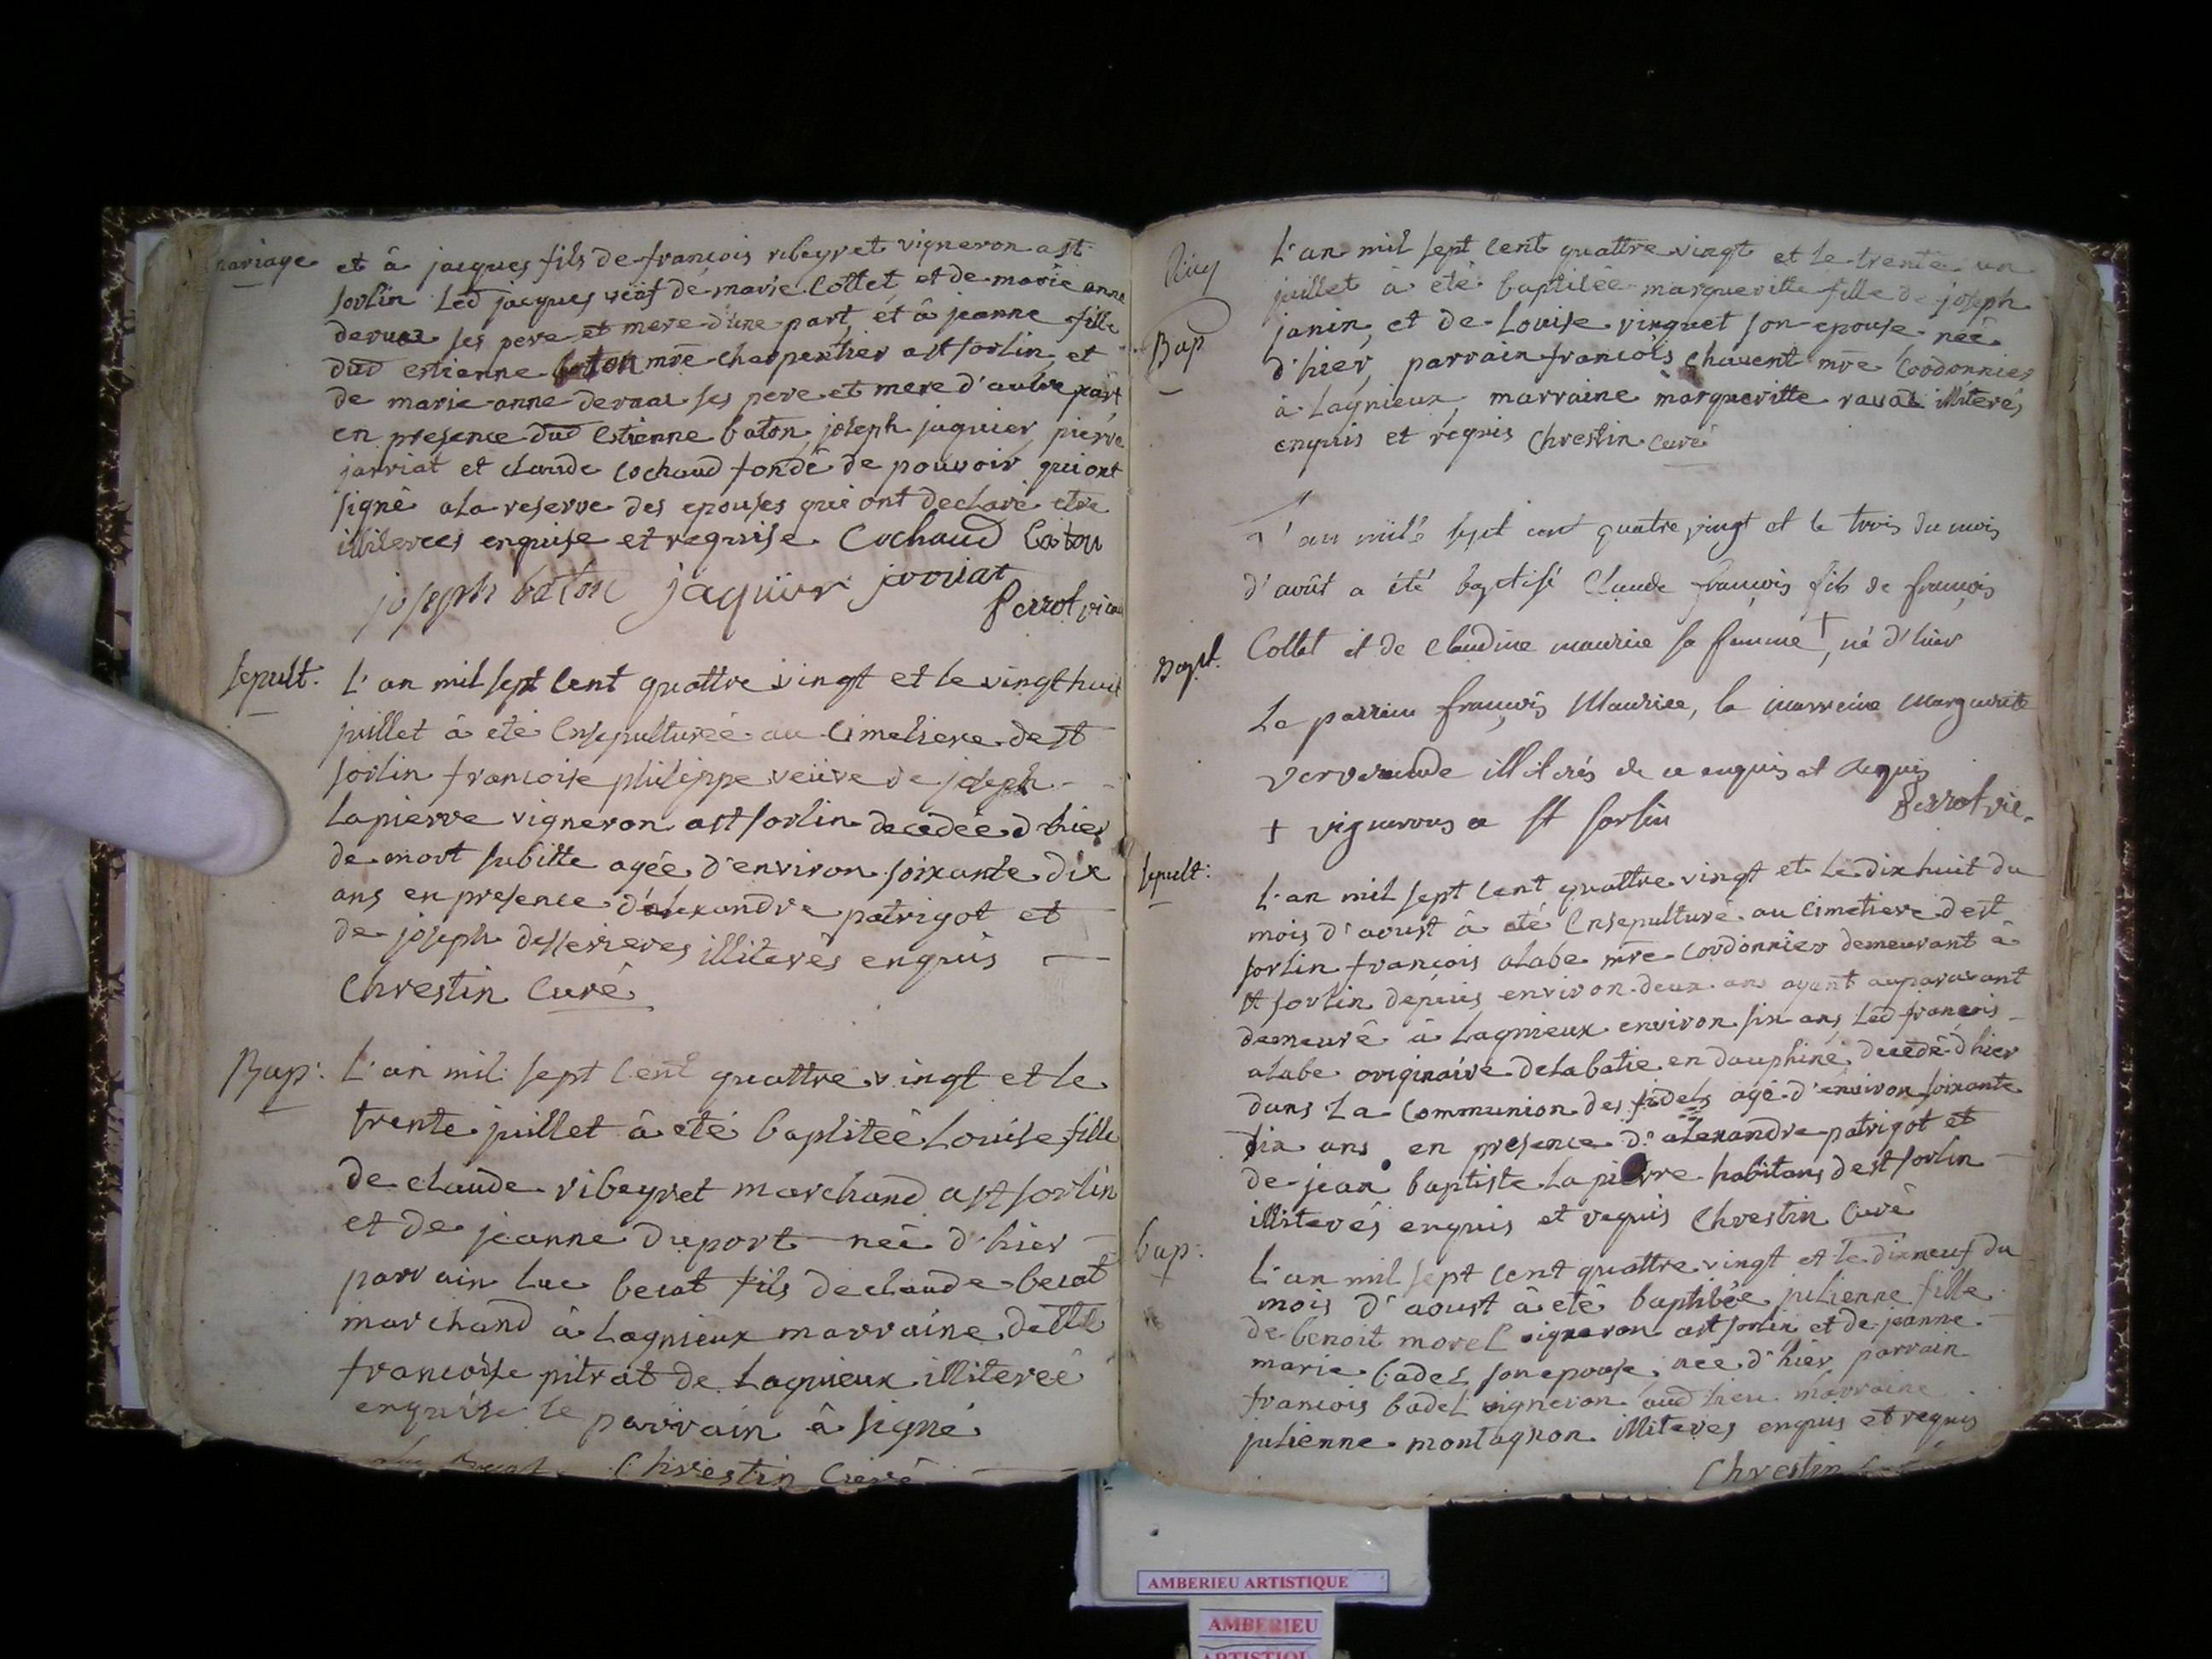 mariage
et â jacques fils de francois ribeyret vigneron a st
sorlin led jacques veuf de marie Collet et de marie anne
ses pere et mere d'une part, et â jeanne fille
dud estienne baton mre charpentier a st sorlin et
de marie anne ses pere et mere d'autre part
en presence dud Estienne baton, joseph jaquier, pierre
jarriat et claude Cochaud fondé de pouvoir qui ont
signé a la reserve des epouses qui ont declaré etre
enquise et requise Cochaud baton
joseph baton jaquier jarriat
Perrot vicaire
sepult.
L'an mil sept Cent quattre vingt et le vingt huit
juillet â eté Ensepulturée au Cimetiere de st
sorlin francoise philippe veuve de joseph
Lapierre vigneron a st sorlin decedée d'hier
de mort subitte agée d'environ soixante dix
ans en presence d'alexandre patrigot et
de joseph illiterés enquis
Chrestin Curé
Bap:
L'an mil sept Cent quattre vingt et le
trente juillet â eté Louise fille
de claude ribeyret marchand a st sorlin
et de jeanne duport née d'hier
parrain Luc fils de claude
marchand â Lagnieux marraine
francoise pitrat de Lagnieux illiterée
enquise le parrain â signé
Chrestin Curé
Bap
L'an mil sept Cent quattre vingt et le trente un
juillet â eté baptisée margueritte fille de joseph
janin, et de Louise vinquet son epouse née
d'hier, parrain francois chavent mre Cordonnier
â Lagnieux, marraine margueritte illiterés
enquis et requis Chrestin curé
Bapt.
L'an mil sept cent quatre vingt et le trois du mois
d'août a été baptisé Claude françois fils de françois
Collet et de Claudine maurice sa femme †, né d'hier
Le parrain françois Maurice, la marreine Marguerite
illiterés de ce enquis et requis
† vignerons a st sorlin Perrot vic.
sepult:
L'an mil sept Cent quattre vingt et le dix huit du
mois d'aoust â eté Ensepulturé au Cimetiere de st
sorlin francois alabe mre Cordonnier demeurant â
st sorlin depuis environ deux ans ayant auparavant
demeuré â Lagnieux environ six ans Led francois
alabe originaire de la batie en dauphiné decedé d'hier
dans La Communion des fidels agé d'environ soixante
dix ans en presence d'alexandre patrigot et
de jean baptiste Lapierre habitans de st sorlin
illiterés enquis et requis Chrestin Curé
bap:
L'an mil sept Cent quattre vingt et le dixneuf du
mois d'aoust â eté baptisée julienne fille
de benoit morel vigneron a st sorlin et de jeanne
marie badel son epouse, née d'hier, parrain
francois badel vigneron aud lieu marraine
julienne montagnon illiteres enquis et requis
Chrestin
AMBERIEU ARTISTIQUE
AMBERIEU
ARTISTIQUE